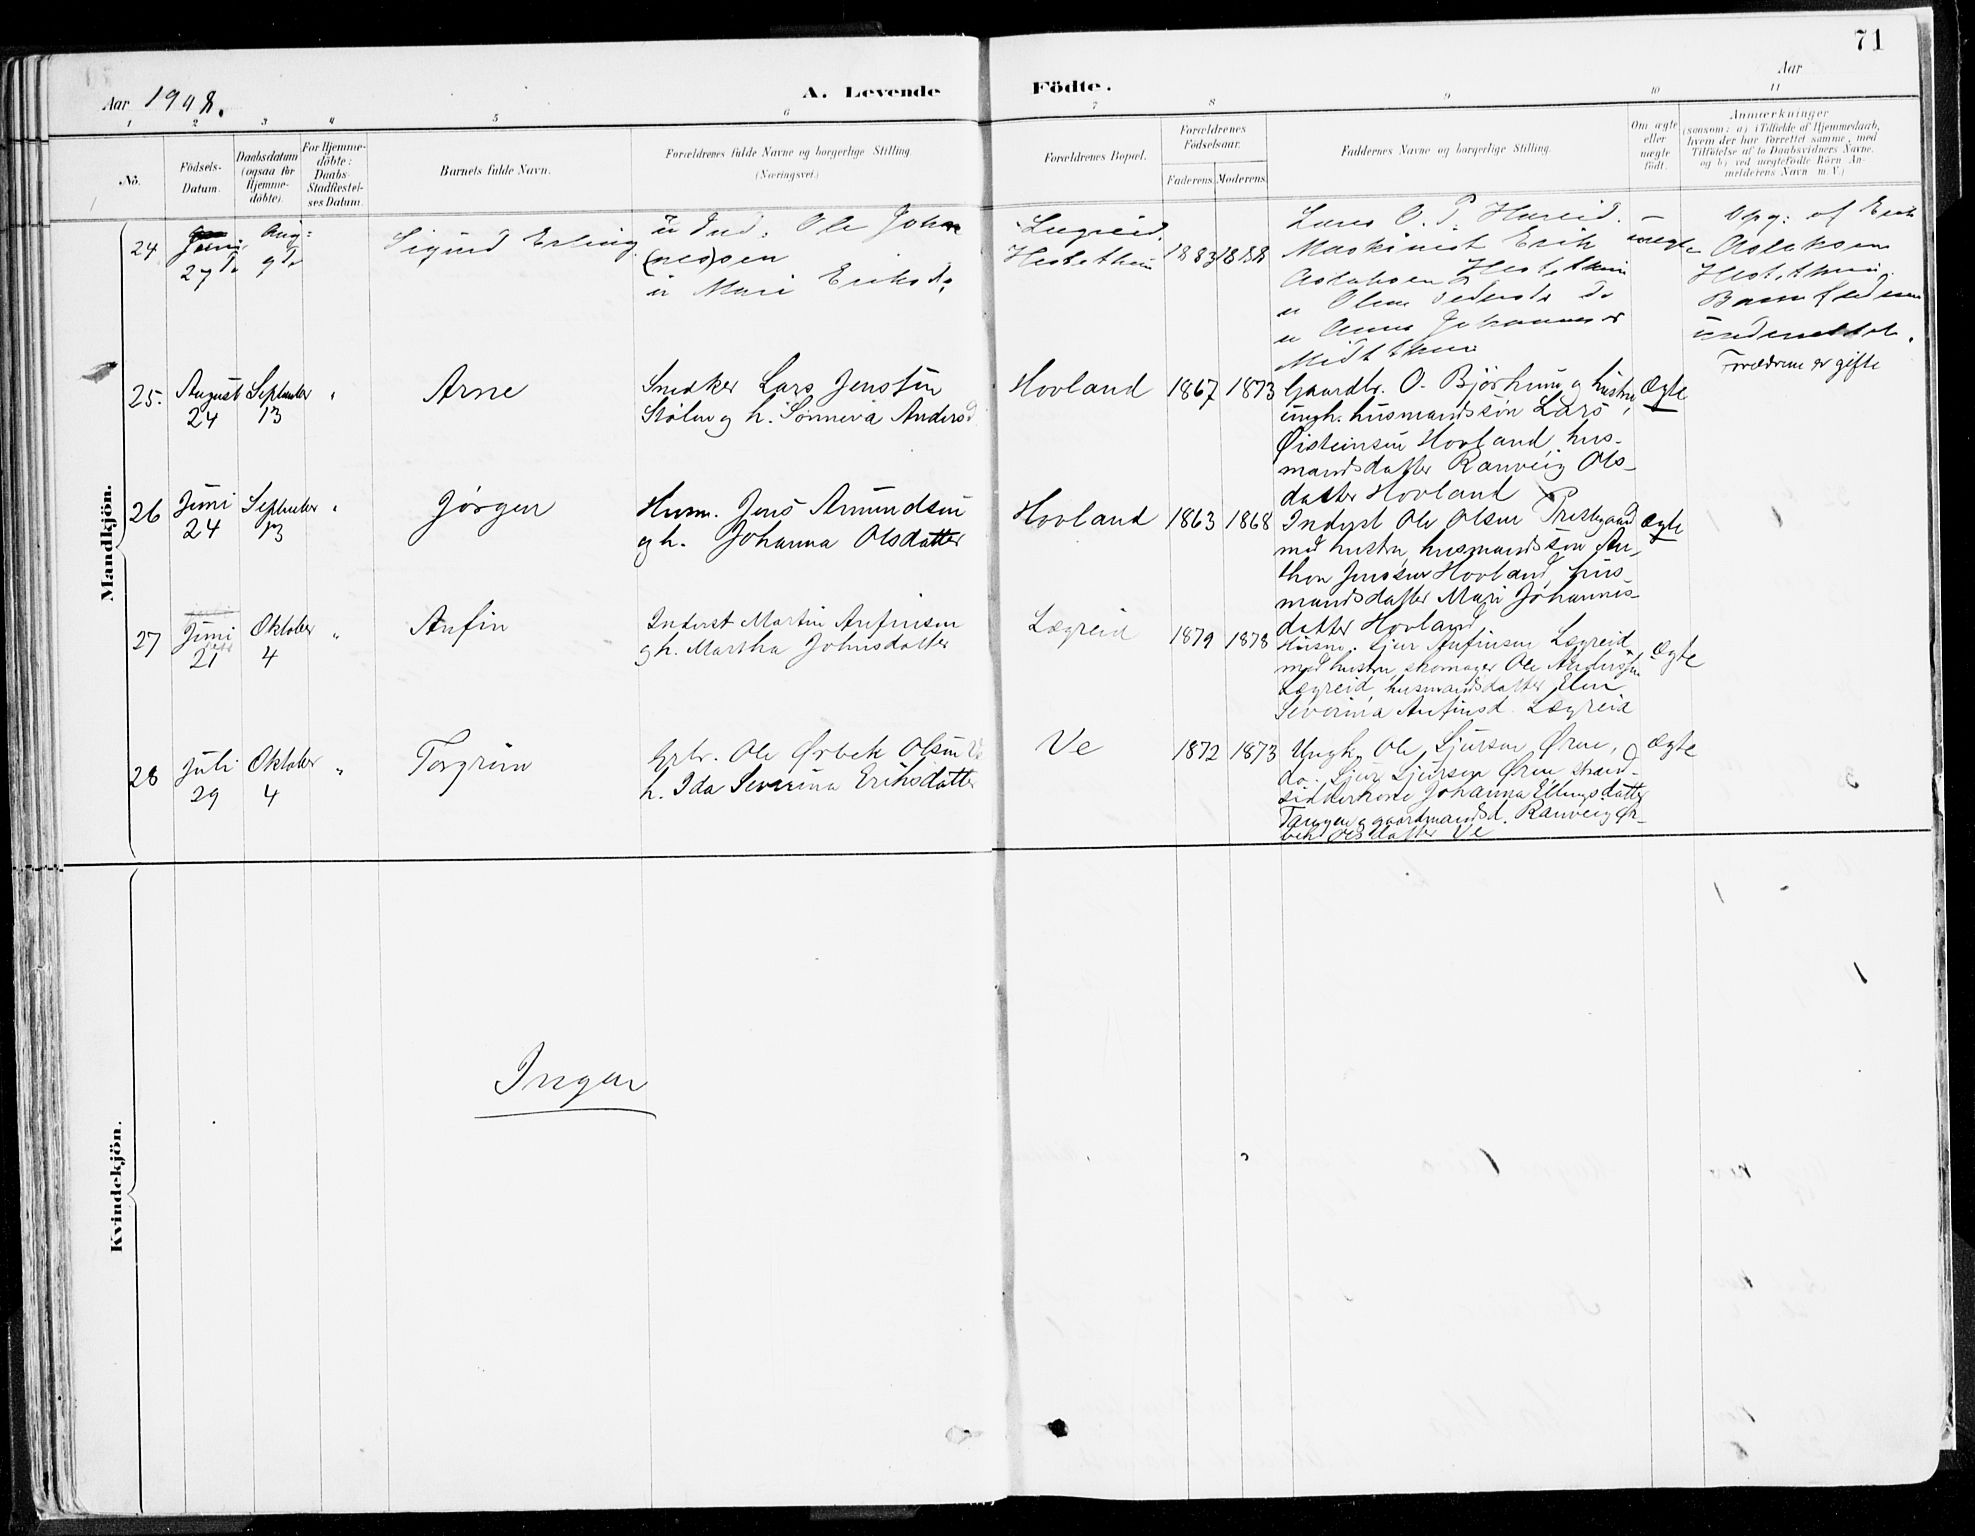 71
Aar 1908.
A. Levende Födte.
Aar
1 2 3 4 5 6 7 8 9 10 11
No.
Födsels-
Datum.
Daabsdatum
(ogsaa for
Hjemme-
döbte).
For Hjemme-
döbte:
Daabs-
Stadfæstel-
ses Datum.
Barnets fulde Navn.
Forældrenes fulde Navne og borgerlige Stilling.
(Næringsvei.)
Forældrenes Bopæl.
Forældrenes
Födselsaar.
Faderens. Moderens.
Faddernes Navne og borgerlige Stilling.
Om ægte
eller
uægte
födt.
Anmærkninger
(saasom: a) i Tilfælde af Hjemmedaab,
hvem der har forrettet samme, med
Tilföielse af to Daabsvidners Navne,
og b) ved uægtefödte Börn An-
melderens Navn m. V.)
Mandkjön.
24
Juni
27de
Aug:
9de
Sigurd Erling
u Ind. Ole Johan
(nes)sen
u Mari Eriksd.
Lægreid
1883 1888
Lars O. T. Hareid.
Maskinist Erik
Aslaksen
u Anna Johannesd
Midttun
uægte
Opg: af Erik
Aslaksen
Forældrene er gifte
25.
August
24
September
13
"
Arne
Snedker Lars Jensen
Stølen og h. Sønneva Andersd
Hovland
1867 1873
Gaardbr. O. Bjørhum og hustru,
ungk. husmandssøn Lars
Øisteinsen Hovland, hus-
mandsdatter Ranveig Ols-
datter Hovland
Ægte
26
Juni
24
September
13
"
Jørgen
Husm. Jens Amundsen
og h. Johanna Olsdatter
Hovland
1863 1868
Inderst Ole Olsen Prestegaard
med hustru, husmandssøn An-
thon Jenssen Hovland, hus-
mandsdatter Mari Johannes-
datter Hovland
Ægte
27
Juni
21
Oktober
4
"
Anfin
Inderst Martin Anfinsen
og h. Martha Johnsdatter
Lægreid
1879 1878
Husm. Sjur Anfinsen Lægreid
med hustru, skomager Ole Andersen
Lægreid, husmandsdatter Elen
Severina Anfinsd. Lægreid
Ægte
28
Juli
29
Oktober
4
"
Torgrim
Grbr. Ole Ørbek Olsen Ve
h. Ida Severina Eriksdatter
Ve
1872 1873
Ungk. Ole Sjursen Øren,
do. Sjur Sjursen Øren, strand-
sidderkone Johanna Ellingsdatter
Tangen og gaardmandsd. Ranveig Ør-
bek Olsdatter Ve
Ægte
Kvindekjön.
Ingen